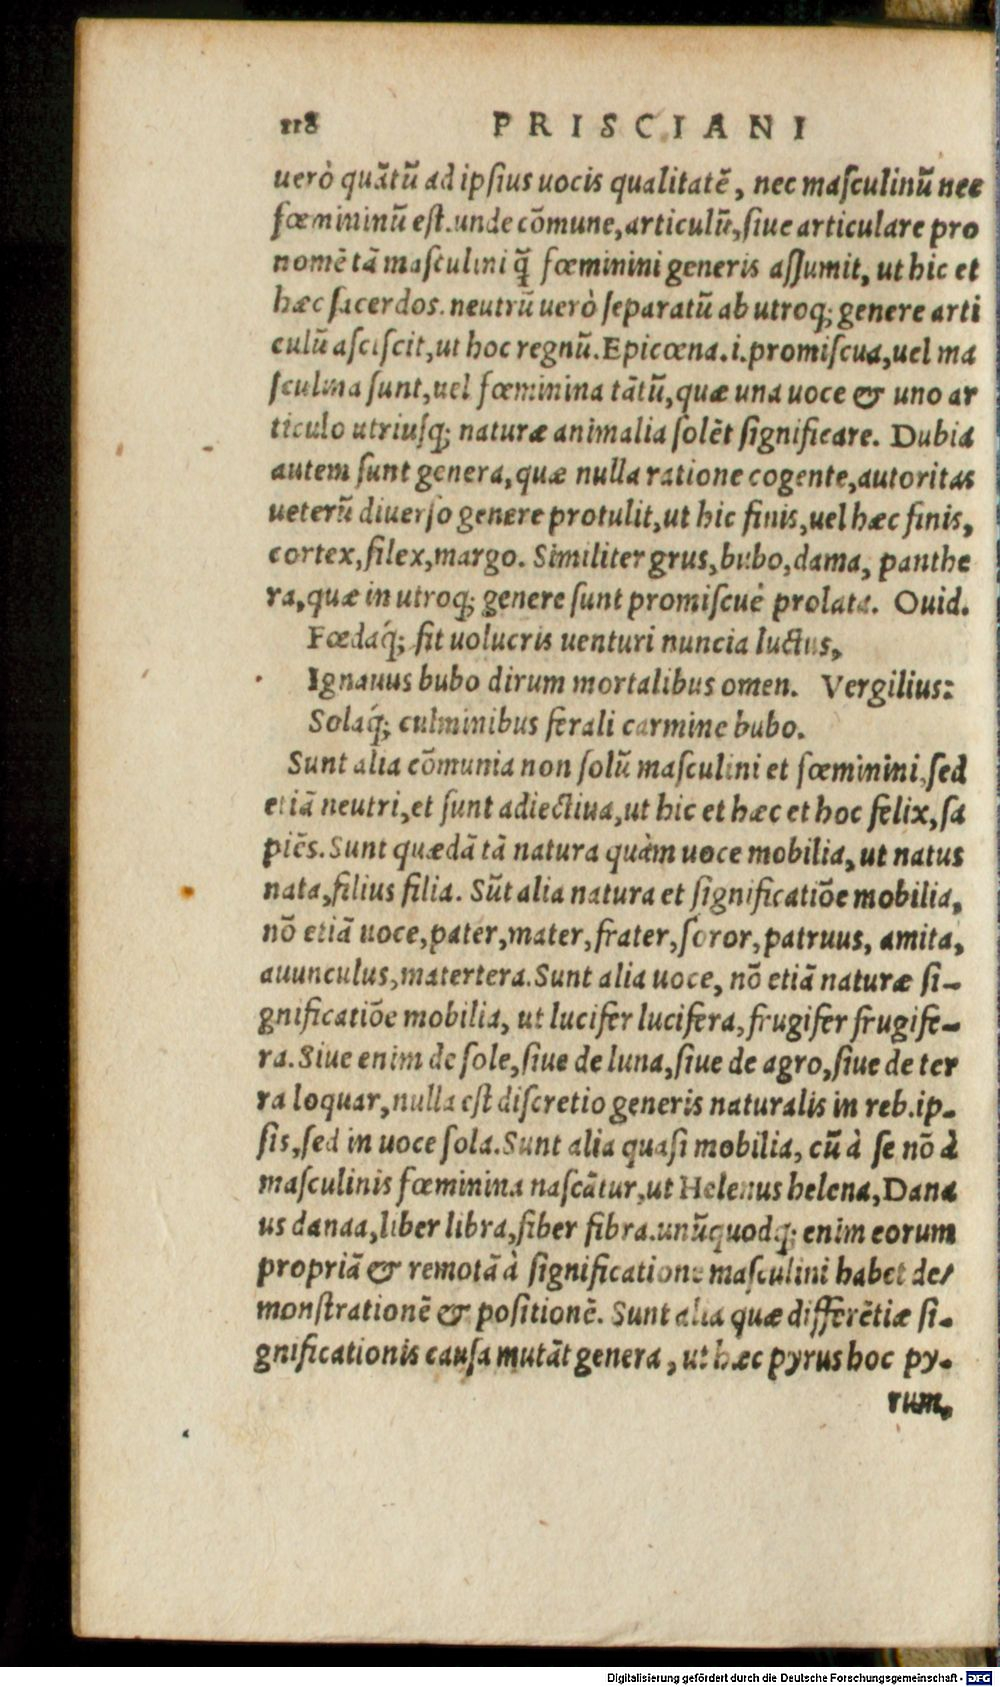 118 PRISCIANI
uerò quãtũ ad ipſius uocis qualitatẽ, nec maſculinũ nec
fœmininũ eſt. unde cõmune, articulũ, ſiue articulare pro
nomẽ tã maſculini q̃ fœminini generis aſſumit, ut hic et
hæc ſacerdos. neutrũ uerò ſeparatũ ab utroq; genere arti
culũ aſciſcit, ut hoc regnũ. Epicœna .i. promiſcua, uel ma
ſculina ſunt, uel fœminina tãtũ, quæ una uoce & uno ar
ticulo utriuſq; naturæ animalia ſolẽt ſignificare. Dubia
autem ſunt genera, quæ nulla ratione cogente, autoritas
ueterũ diuerſo genere protulit, ut hic finis, uel hæc finis,
cortex, ſilex, margo. Similiter grus, bubo, dama, panthe
ra, quæ in utroq; genere ſunt promiſcuè prolata. Ouid.
Fœdaq́; fit uolucris uenturi nuncia luctus,
Ignauus bubo dirum mortalibus omen. Vergilius:
Solaq́; culminibus ferali carmine bubo.
Sunt alia cõmunia non ſolũ maſculini et fœminini, ſed
etiã neutri, et ſunt adiectiua, ut hic et hæc et hoc felix, ſa
piẽs. Sunt quædã tã natura quàm uoce mobilia, ut natus
nata, filius filia. Sũt alia natura et ſignificatiõe mobilia,
nõ etiã uoce, pater, mater, frater, ſoror, patruus, amita,
auunculus, matertera. Sunt alia uoce, nõ etiã naturæ ſi-
gnificatiõe mobilia, ut lucifer lucifera, frugifer frugife-
ra. Siue enim de ſole, ſiue de luna, ſiue de agro, ſiue de ter
ra loquar, nulla eſt diſcretio generis naturalis in reb. ip-
ſis, ſed in uoce ſola. Sunt alia quaſi mobilia, cũ à ſe nõ à
maſculinis fœminina naſcãtur, ut Helenus helena, Dana
us danaa, liber libra, fiber fibra. unũquodq; enim eorum
propriã & remotã à ſignificatione maſculini habet de-
monſtrationẽ & poſitionẽ. Sunt alia quæ differẽtiæ ſi-
gnificationis cauſa mutãt genera, ut hæc pyrus hoc py-
rum,
Digitalisierung gefördert durch die Deutsche Forschungsgemeinschaft - DFG